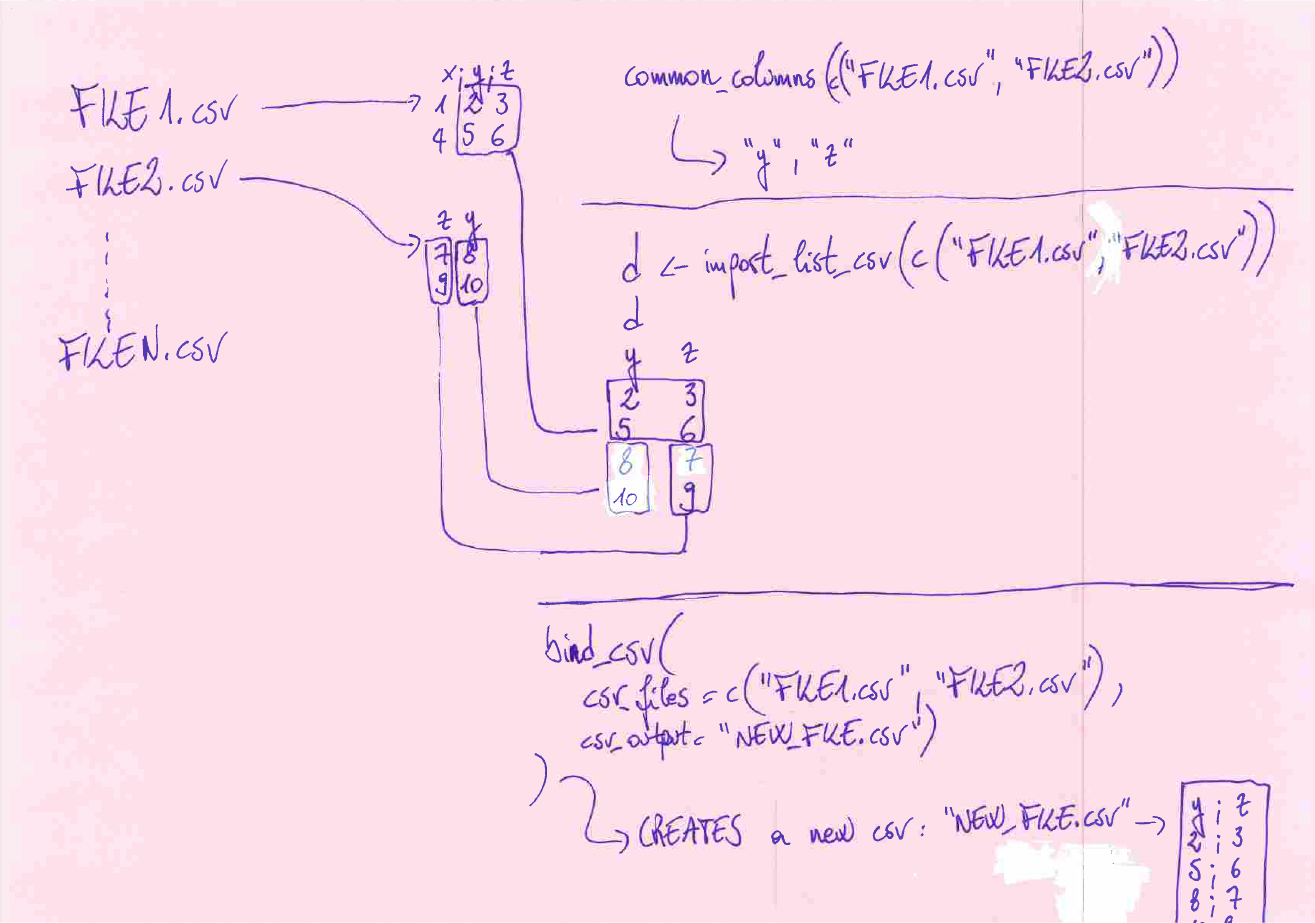 FILE1.csv
FILE2.csv
FILEN.csv
x;y;z
1 2 3
4 5 6
z y
7 8
9 10
common_columns(c("FILE1.csv", "FILE2.csv"))
"y", "z"
d <- import_list_csv(c("FILE1.csv", "FILE2.csv"))
d
y z
2 3
5 6
8 7
10 9
bind_csv(
csv_files = c("FILE1.csv", "FILE2.csv"),
csv_output = "NEW_FILE.csv")
)
CREATES a new csv: "NEW_FILE.csv"
y ; z
2 ; 3
5 ; 6
8 ; 7